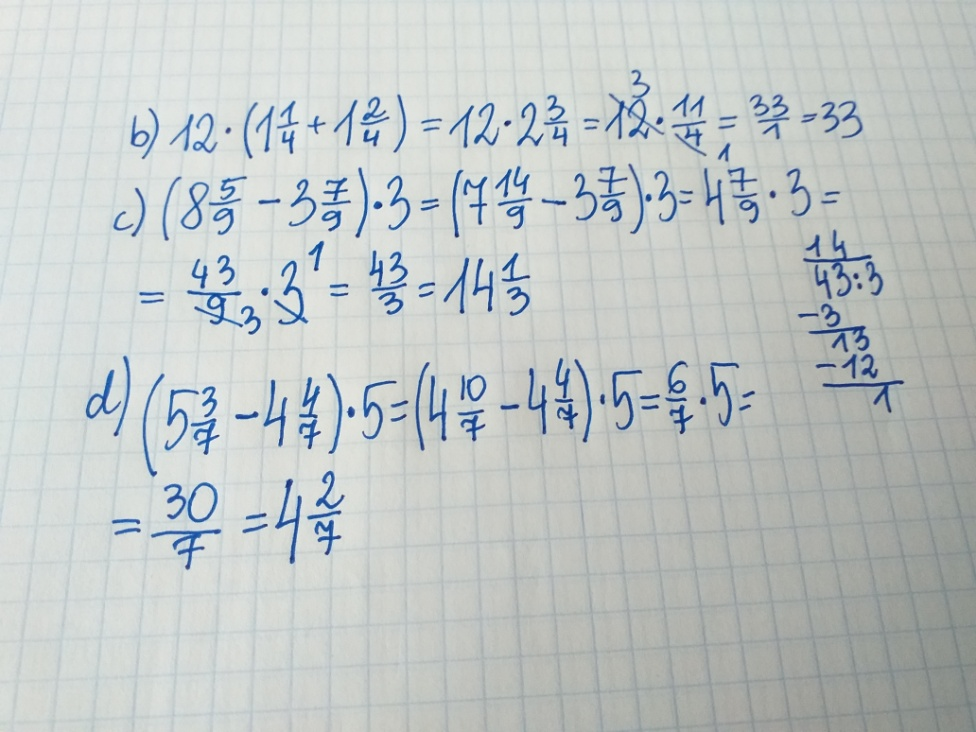 b) 12·(1 1/4 + 1 2/4) = 12·2 3/4 = 12 3·11/4 1 = 33/1 = 33
c) (8 5/9 − 3 7/9)·3 = (7 14/9 − 3 7/9)·3 = 4 7/9 · 3 =
= 43/9 3 · 3 1 = 43/3 = 14 1/3
14
43:3
−3
13
−12
1
d) (5 3/7 − 4 4/7)·5 = (4 10/7 − 4 4/7)·5 = 6/7 · 5 =
= 30/7 = 4 2/7